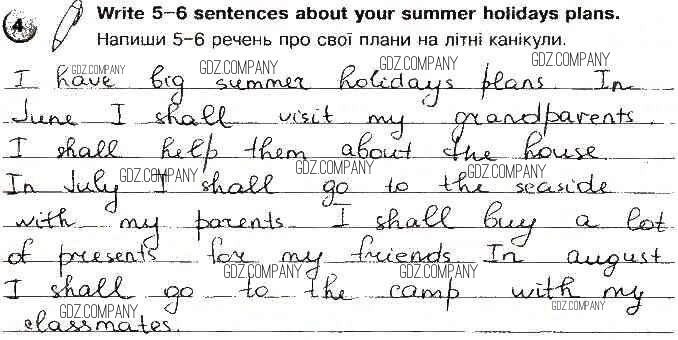 4 Write 5–6 sentences about your summer holidays plans.
Напиши 5–6 речень про свої плани на літні канікули.
GDZ.COMPANY GDZ.COMPANY GDZ.COMPANY
I have big summer holidays plans. In
June I shall visit my grandparents.
I shall help them about the house
GDZ.COMPANY GDZ.COMPANY GDZ.COMPANY
In July I shall go to the seaside
with my parents I shall buy a lot
of presents for my friends. In august
GDZ.COMPANY GDZ.COMPANY
I shall go to the camp with my
GDZ.COMPANY
classmates.